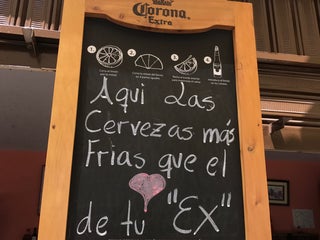 Corona
Extra
1 2 3 4
Aqui Las
Cervezas más
Frias que el
de tu "Ex"